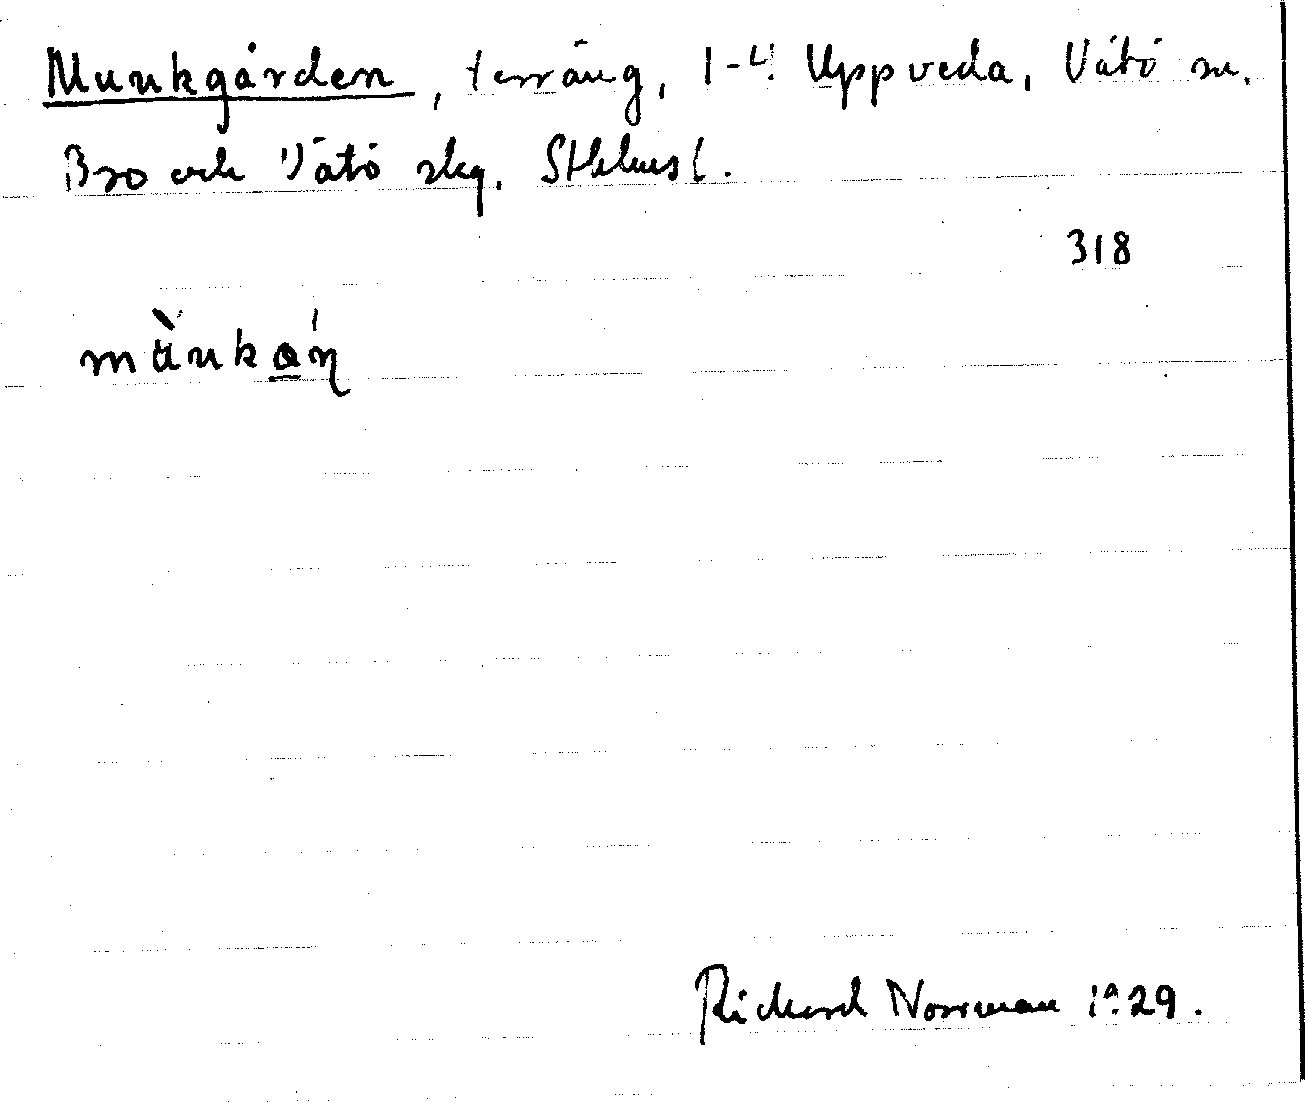 Munkgården, terräng, 1-4. Uppveda, Vätö sn.
Bro och Vätö skg. Sthlms l.
318
mùnkán
Rickard Norrman 1929.